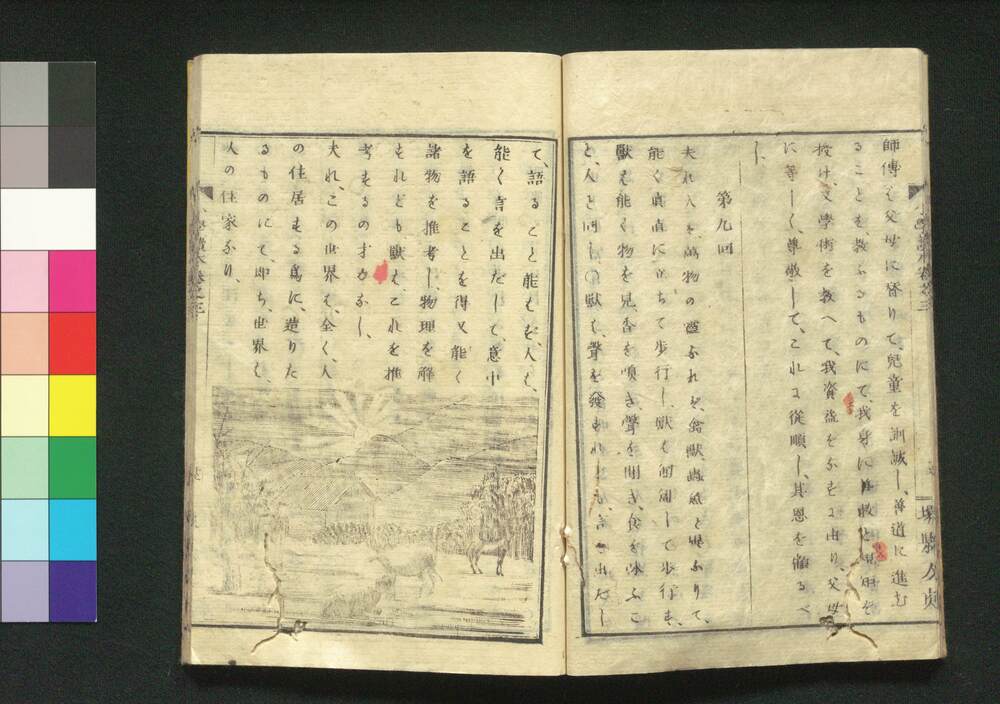 師傅は父母に督りて、兒童を訓誡し、善道に進む
ることを、教ふるものにて、我身に
授け、又學術を教へて、我資益をなすに由り、父母
に等しく、尊敬して、これに從順し、其恩を報るべ
し
第九回
夫れ人は、萬物の靈なれば、禽獸蟲魚と異なりて、
能く眞直に立ちて歩行し、獸も匍匐して歩行す、
獸も能く物を見、香を嗅ぎ聲を聞き、食を味ふこ
と、人と同じ〇獸も、聲を發すれども、言を出だし
て、語ること能はず、人は、
能く言を出だして、意中
を語ることを得又能く
諸物を推考し、物理を解
すれども獸はこれを推
考するの才力なし、
夫れ、この世界は、全く、人
の住居する爲に、造りた
るものにて、即ち、世界は、
人の住家なり、
小學讀本卷之三